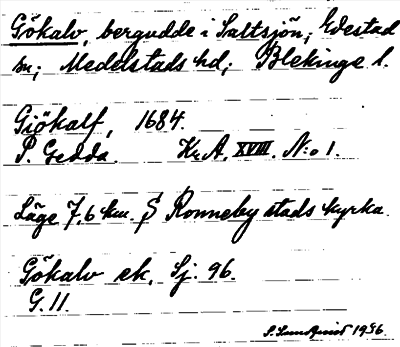 Gökalv, bergudde i Saltsjön; Edestad
sn; Medelstads hd; Blekinge l.
Giökalf, 1684.
P. Gedda. Kr.A. XVIII. N:o 1.
Läge 7,6 km. S Ronneby stads kyrka.
Gökalv ek. Sj. 96.
G. 11.
S. Sundqvist 1956.